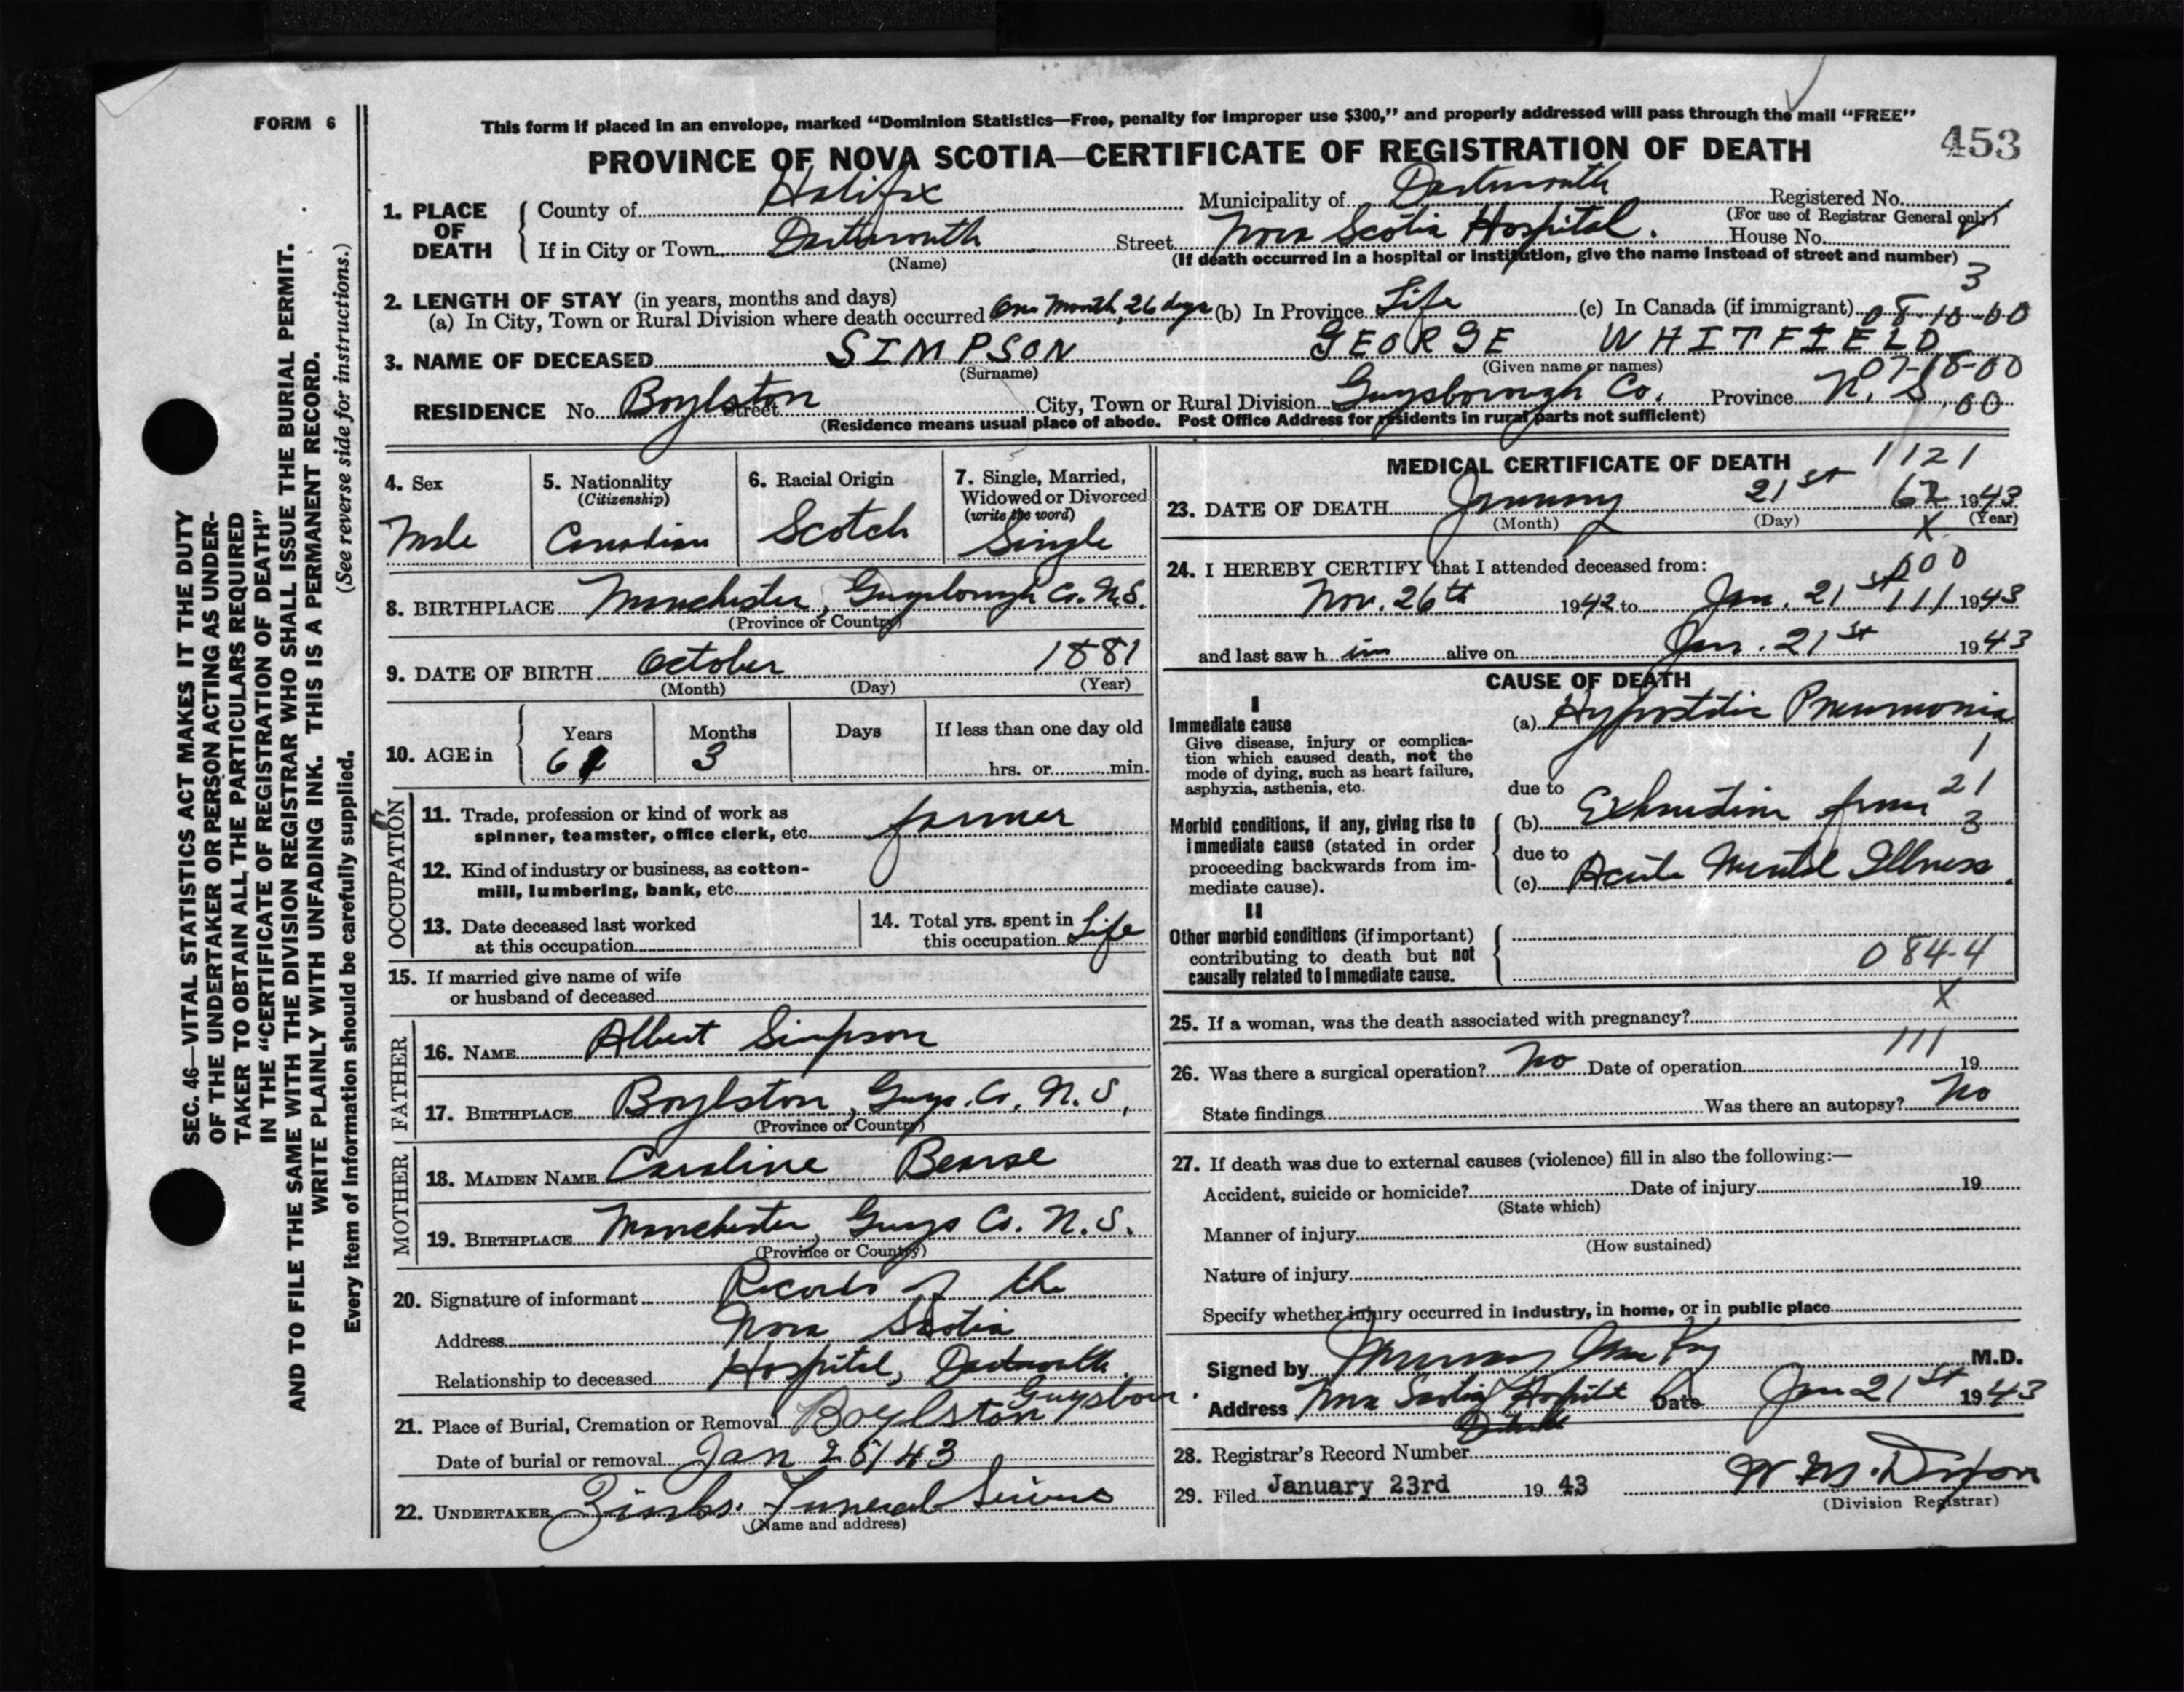 FORM 6
This form if placed in an envelope, marked "Dominion Statistics—Free, penalty for improper use $300," and properly addressed will pass through the mail "FREE"
PROVINCE OF NOVA SCOTIA—CERTIFICATE OF REGISTRATION OF DEATH
453
1. PLACE OF DEATH
County of Halifax Municipality of Dartmouth Registered No.
(For use of Registrar General only)
If in City or Town Dartmouth Street Nova Scotia Hospital. House No.
(Name) (If death occurred in a hospital or institution, give the name instead of street and number)
3
2. LENGTH OF STAY (in years, months and days)
(a) In City, Town or Rural Division where death occurred One Month, 26 days (b) In Province Life (c) In Canada (if immigrant) 08-10-00
3. NAME OF DECEASED SIMPSON GEORGE WHITFIELD
(Surname) (Given name or names) 07-18-00
RESIDENCE No. Boylston Street City, Town or Rural Division Guysborough Co. Province N. S. 00
(Residence means usual place of abode. Post Office Address for residents in rural parts not sufficient)
4. Sex
Male
5. Nationality
(Citizenship)
Canadian
6. Racial Origin
Scotch
7. Single, Married, Widowed or Divorced
(write the word)
Single
8. BIRTHPLACE Manchester, Guysborough Co. N.S.
(Province or Country)
9. DATE OF BIRTH October 1881
(Month) (Day) (Year)
10. AGE in
Years Months Days If less than one day old
61 3 hrs. or min.
OCCUPATION
11. Trade, profession or kind of work as
spinner, teamster, office clerk, etc. farmer
12. Kind of industry or business, as cotton-
mill, lumbering, bank, etc.
13. Date deceased last worked
at this occupation
14. Total yrs. spent in
this occupation Life
15. If married give name of wife
or husband of deceased
FATHER
16. NAME Albert Simpson
17. BIRTHPLACE Boylston, Guys. Co. N.S.
(Province or Country)
MOTHER
18. MAIDEN NAME Caroline Bearse
19. BIRTHPLACE Manchester, Guys Co. N.S.
(Province or Country)
20. Signature of informant Records of the
Address Nova Scotia
Relationship to deceased Hospital, Dartmouth.
21. Place of Burial, Cremation or Removal Boylston Guysboro
Date of burial or removal Jan 25/43
22. UNDERTAKER Zinks. Funeral Service
(Name and address)
MEDICAL CERTIFICATE OF DEATH 1121
23. DATE OF DEATH January 21st 1943
(Month) (Day) (Year)
X
24. I HEREBY CERTIFY that I attended deceased from:
000
Nov. 26th 1942 to Jan. 21st 111 1943
and last saw him alive on Jan. 21st 1943
CAUSE OF DEATH
I
Immediate cause
Give disease, injury or complica-
tion which caused death, not the
mode of dying, such as heart failure,
asphyxia, asthenia, etc.
(a) Hypostatic Pneumonia
1
due to
21
Morbid conditions, if any, giving rise to
immediate cause (stated in order
proceeding backwards from im-
mediate cause).
(b) Exhaustion from
3
due to
(c) Acute Mental Illness.
II
Other morbid conditions (if important)
contributing to death but not
causally related to immediate cause.
084-4
X
25. If a woman, was the death associated with pregnancy?
111
26. Was there a surgical operation? No Date of operation 19
State findings Was there an autopsy? No
27. If death was due to external causes (violence) fill in also the following:—
Accident, suicide or homicide? Date of injury 19
(State which)
Manner of injury
(How sustained)
Nature of injury
Specify whether injury occurred in industry, in home, or in public place
Signed by Murray MacKay M.D.
Address Nova Scotia Hospital Date Jan 21st 1943
28. Registrar's Record Number
29. Filed January 23rd 1943 W. M. Dixon
(Division Registrar)
SEC. 46—VITAL STATISTICS ACT MAKES IT THE DUTY
OF THE UNDERTAKER OR PERSON ACTING AS UNDER-
TAKER TO OBTAIN ALL THE PARTICULARS REQUIRED
IN THE "CERTIFICATE OF REGISTRATION OF DEATH"
AND TO FILE THE SAME WITH THE DIVISION REGISTRAR WHO SHALL ISSUE THE BURIAL PERMIT.
WRITE PLAINLY WITH UNFADING INK. THIS IS A PERMANENT RECORD.
Every item of information should be carefully supplied. (See reverse side for instructions.)